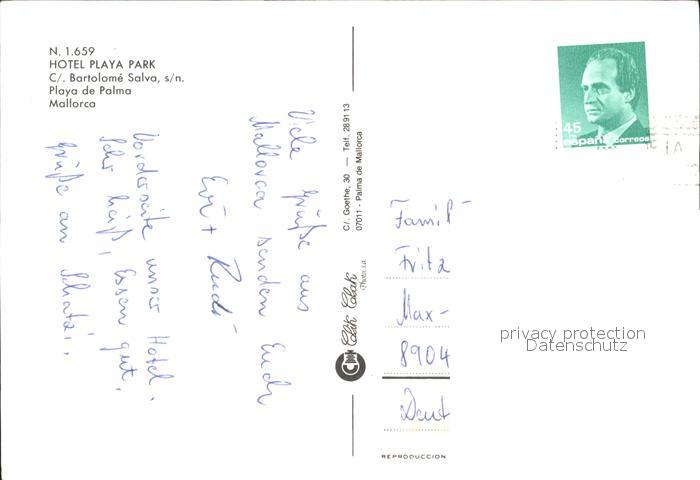 N. 1.659
HOTEL PLAYA PARK
C/. Bartolomé Salva, s/n.
Playa de Palma
Mallorca
Viele Grüße aus
Mallorca senden Euch
Evi + Rudi
Vorderseite unser Hotel.
Sehr heiß, Essen gut.
Grüße an Schatzi.
Clik Clak
Photo s.a.
C/. Goethe, 30 — Telf. 28 91 13
07011 - Palma de Mallorca
45
españa correos
Famil
Fritz
Max-
8904
Deut
REPRODUCCION
privacy protection
Datenschutz